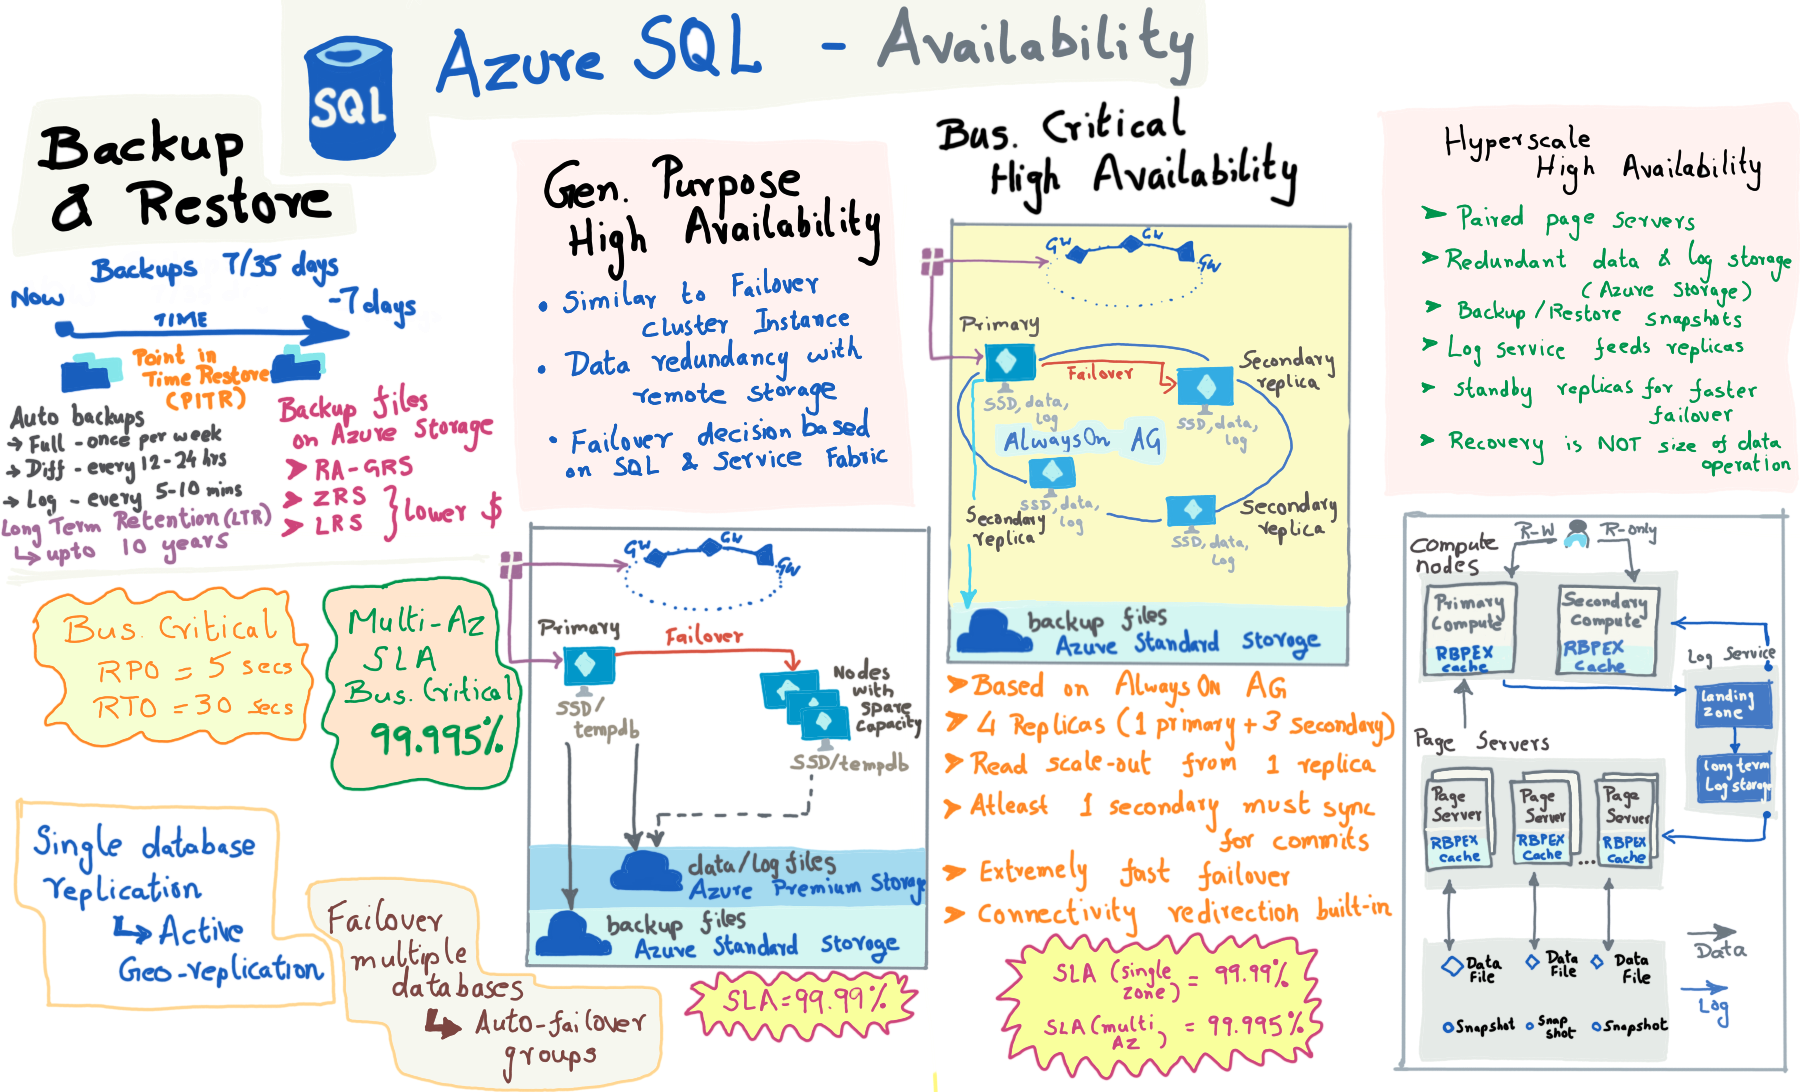 SQL
Azure SQL - Availability
Backup
& Restore
Backups 7/35 days
Now
-7 days
TIME
Point in
Time Restore
(PITR)
Auto backups
→ Full - once per week
→ Diff - every 12-24 hrs
→ Log - every 5-10 mins
Long Term Retention (LTR)
↳ upto 10 years
Backup files
on Azure Storage
➤ RA-GRS
➤ ZRS
➤ LRS
} lower $
Bus. Critical
RPO = 5 secs
RTO = 30 secs
Multi-Az
SLA
Bus. Critical
99.995%
Single database
replication
↳ Active
Geo-replication
Failover
multiple
databases
↳ Auto-failover
groups
Gen. Purpose
High Availability
• Similar to Failover
cluster Instance
• Data redundancy with
remote storage
• Failover decision based
on SQL & Service Fabric
GW
GW
GW
Primary
Failover
Nodes
with
spare
capacity
SSD/
tempdb
SSD/tempdb
data/log files
Azure Premium Storage
backup files
Azure Standard Storage
SLA = 99.99%
Bus. Critical
High Availability
GW
GW
GW
Primary
Failover
Secondary
replica
SSD, data,
log
SSD, data,
log
AlwaysOn AG
SSD, data,
log
Secondary
replica
Secondary
replica
SSD, data,
log
backup files
Azure Standard Storage
➤ Based on Always On AG
➤ 4 Replicas (1 primary + 3 secondary)
➤ Read scale-out from 1 replica
➤ Atleast 1 secondary must sync
for commits
➤ Extremely fast failover
➤ Connectivity redirection built-in
SLA (single
zone) = 99.99%
SLA (multi
AZ) = 99.995%
Hyperscale
High Availability
➤ Paired page servers
➤ Redundant data & log storage
(Azure Storage)
➤ Backup/Restore snapshots
➤ Log service feeds replicas
➤ Standby replicas for faster
failover
➤ Recovery is NOT size of data
operation
R-W
R-only
Compute
nodes
Primary
Compute
RBPEX
cache
Secondary
Compute
RBPEX
cache
Log Service
landing
zone
long term
Log storage
Page Servers
Page
Server
RBPEX
cache
Page
Server
RBPEX
Cache
...
Page
Server
RBPEX
Cache
Data
File
Data
File
Data
File
Snapshot
Snap
shot
Snapshot
Data
Log